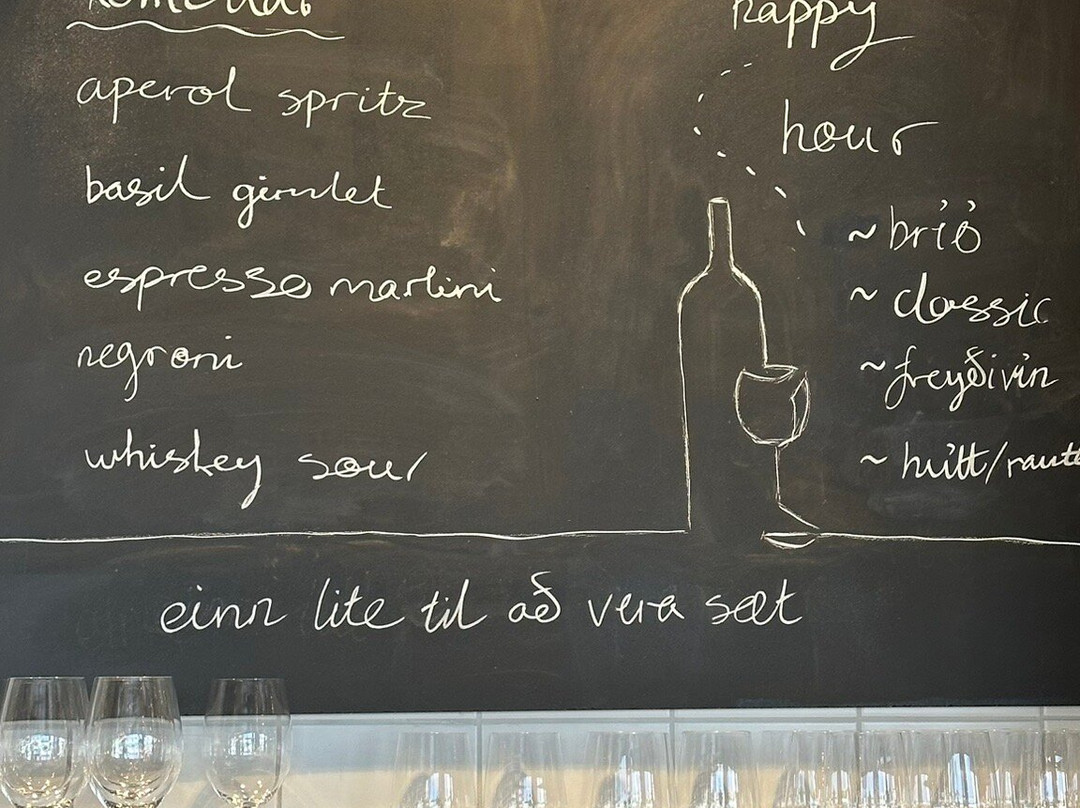 aperol spritz
basil gimlet
espresso martini
negroni
whiskey sour
happy
hour
~ bríó
~ classic
~ freyðivín
~ hvítt/rautt
einn lite til að vera sæt